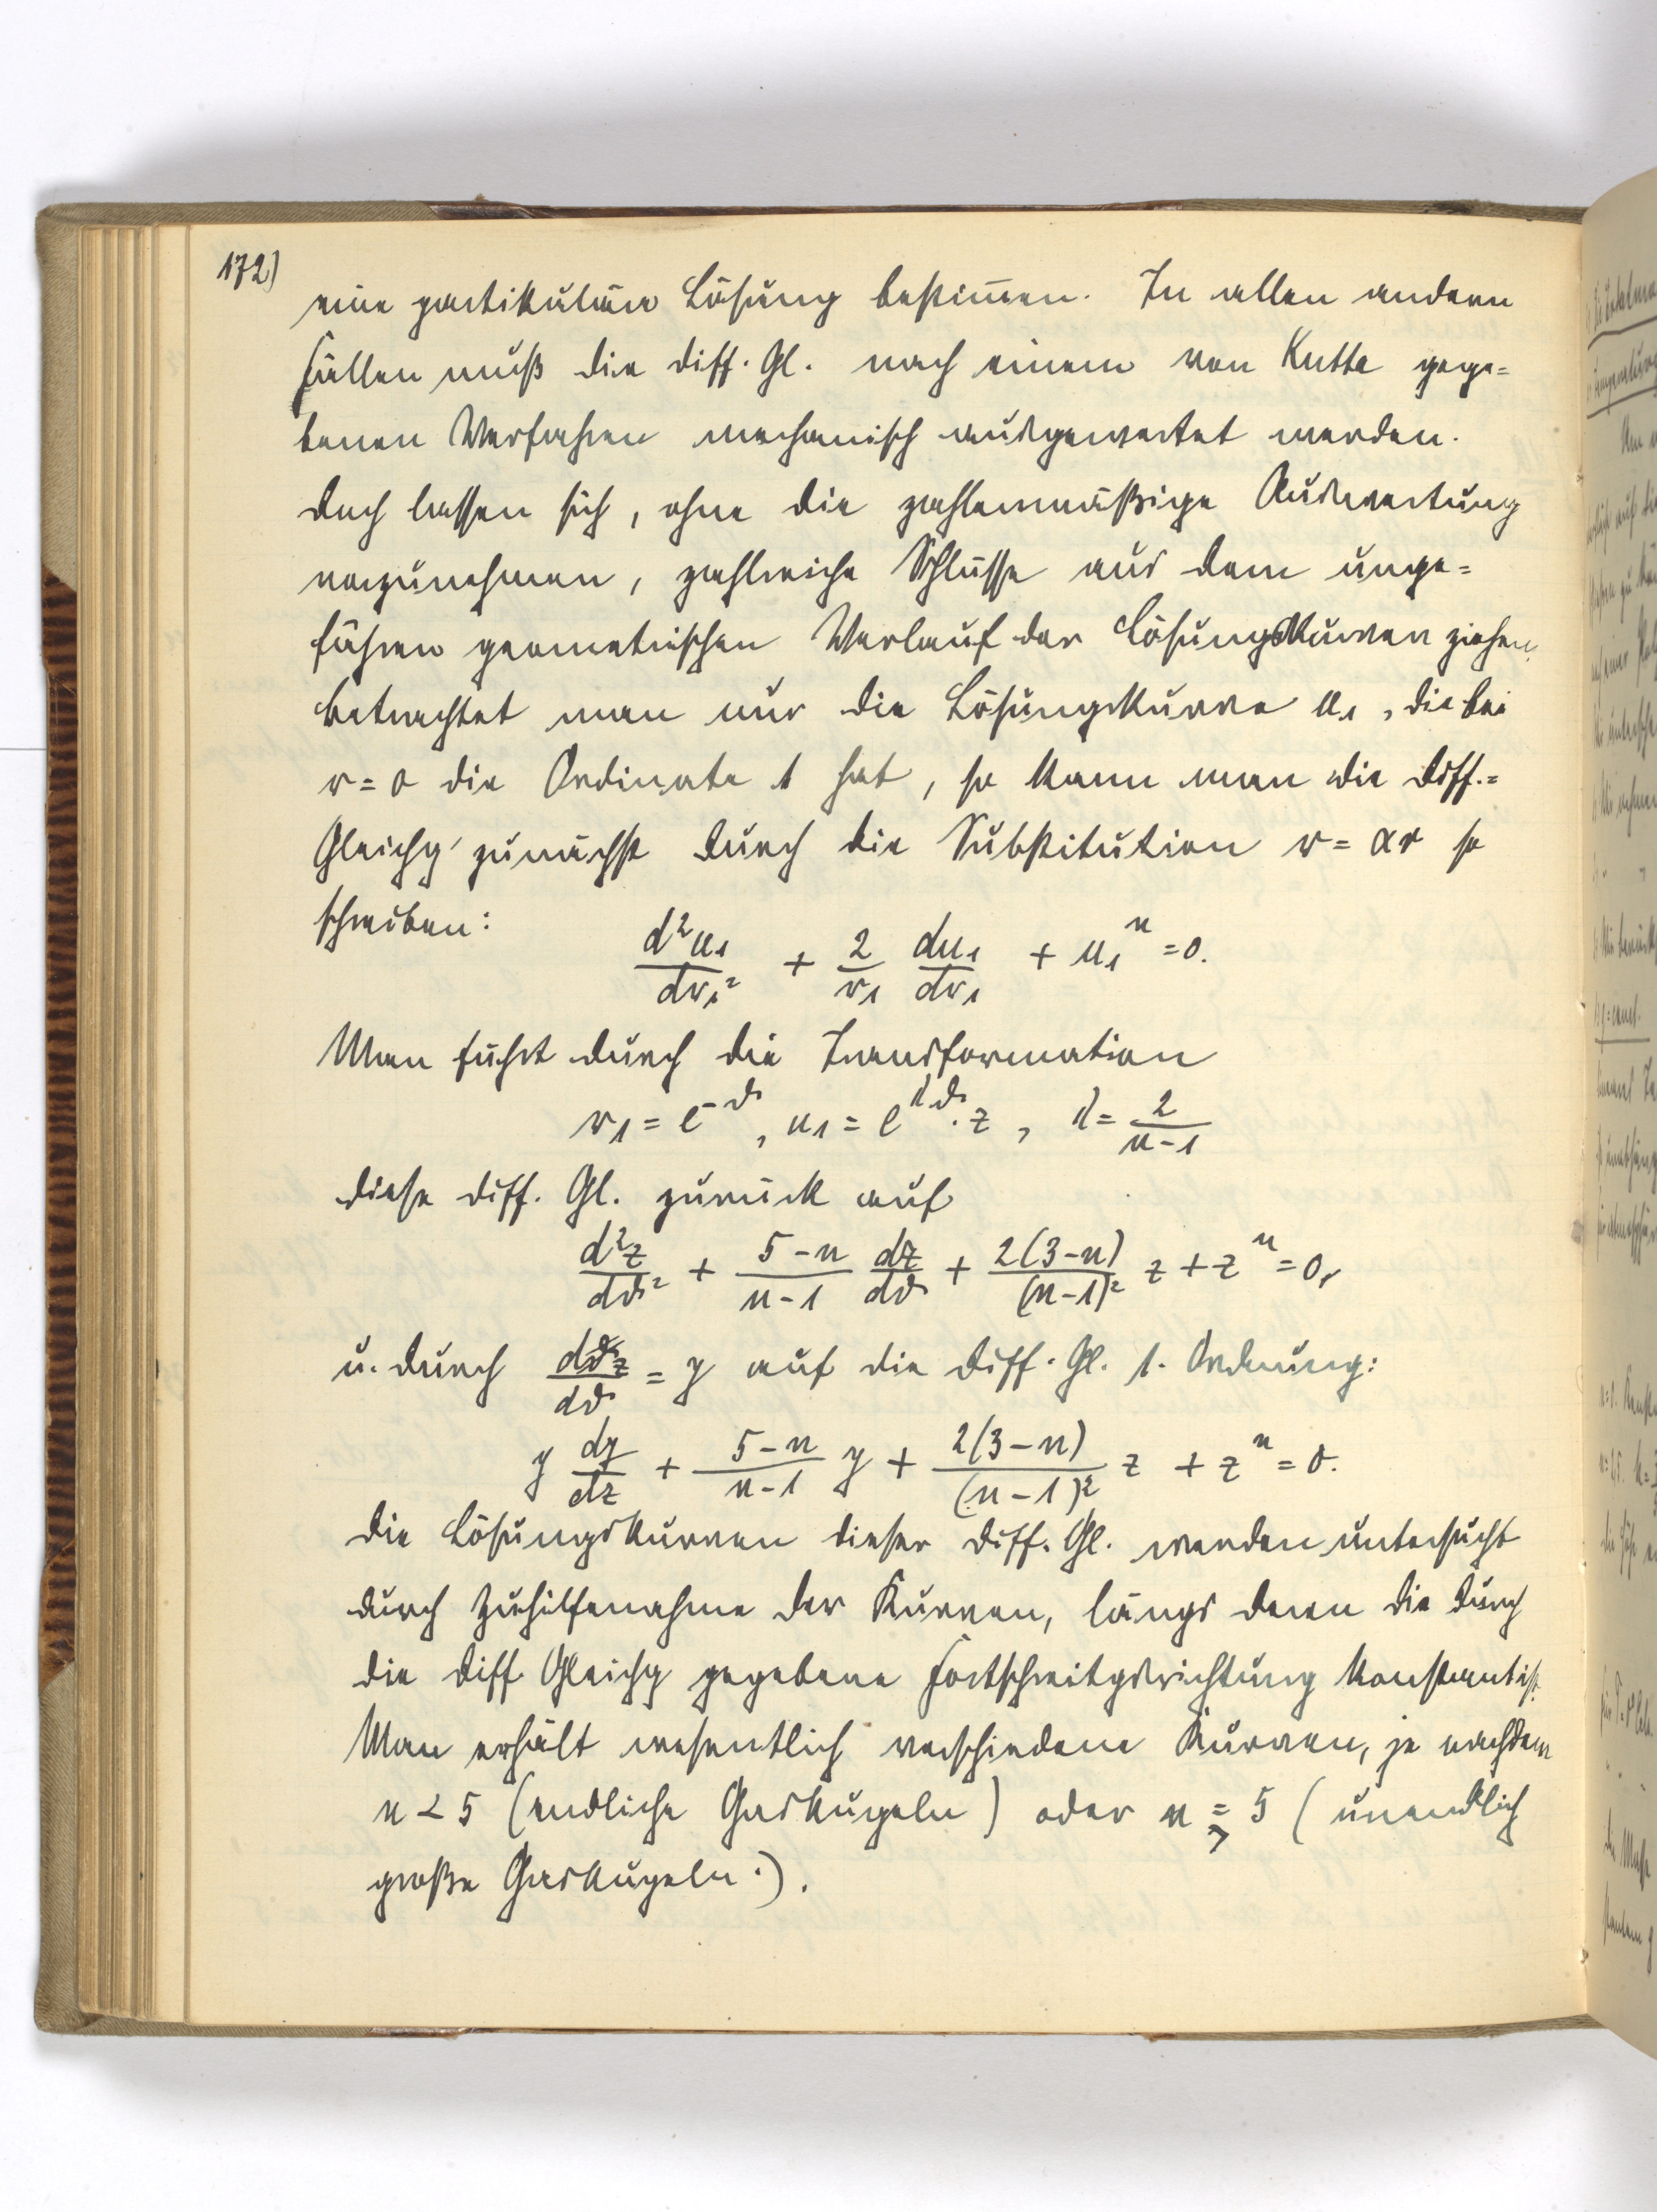 172)
eine partikuläre Lösung bestimmen. In allen andern
Fällen muß die Diff. Gl. nach einem von Kutta gege=
benen Verfahren mechanisch ausgewertet werden.
Doch lassen sich, ohne die zahlenmäßige Auswertung
vorzunehmen, zahlreiche Schlüsse aus dem unge=
fähren geometrischen Verlauf der Lösungskurven ziehen.
Betrachtet man nur die Lösungskurve u₁, die bei
r = 0 die Ordinate 1 hat, so kann man die Diff.=
Gleichg zunächst durch die Substitution r = αr so
schreiben:
d²u₁/dr₁² + 2/r₁ du₁/dr₁ + u₁ⁿ = 0.
Man führt durch die Transformation
r₁ = e^(-ϑ), u₁ = e^(λϑ) · z, λ = 2/(n-1)
diese Diff. Gl. zurück auf
d²z/dϑ² + (5-n)/(n-1) dz/dϑ + 2(3-n)/(n-1)² z + zⁿ = 0,
u. durch dz/dϑ = y auf die Diff. Gl. 1. Ordnung:
y dy/dz + (5-n)/(n-1) y + 2(3-n)/(n-1)² z + zⁿ = 0.
Die Lösungskurven dieser Diff. Gl. werden untersucht
durch Zuhilfenahme der Kurven, längs deren die durch
die Diff. Gleichg gegebene Fortschreitgsrichtung konstant ist.
Man erhält wesentlich verschiedene Kurven, je nachdem
n < 5 (endliche Gaskugeln) oder n ≧ 5 (unendlich
große Gaskugeln.).